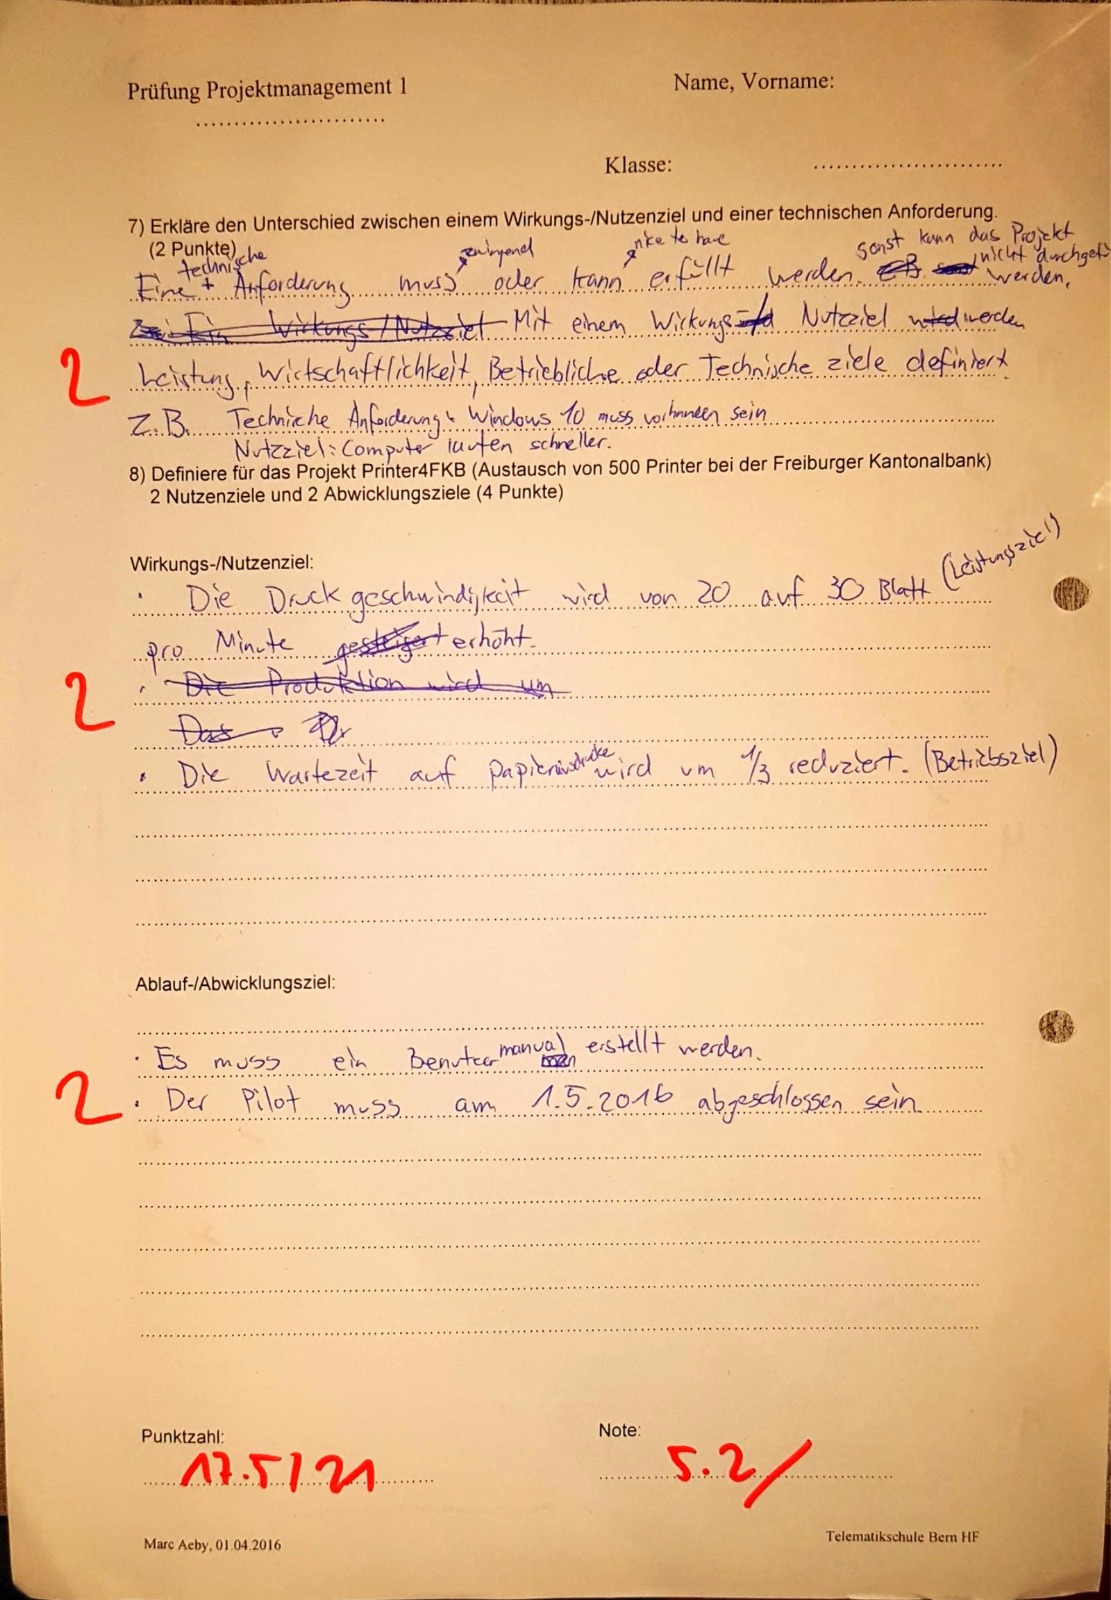 Prüfung Projektmanagement 1
Name, Vorname:
Klasse:
7) Erkläre den Unterschied zwischen einem Wirkungs-/Nutzenziel und einer technischen Anforderung.
(2 Punkte)
technische zwingend nice to have sonst kann das Projekt
Eine Anforderung muss oder kann erfüllt werden. nicht durchgef
werden.
Zwei Ein Wirkungs/Nutzziel Mit einem Wirkungs Nutzziel werden
2
Leistung, Wirtschaftlichkeit, Betriebliche oder Technische ziele definiert
z.B. Technische Anforderung: Windows 10 muss vorhanden sein
Nutzziel: Computer laufen schneller.
8) Definiere für das Projekt Printer4FKB (Austausch von 500 Printer bei der Freiburger Kantonalbank)
2 Nutzenziele und 2 Abwicklungsziele (4 Punkte)
Wirkungs-/Nutzenziel:
· Die Druckgeschwindigkeit wird von 20 auf 30 Blatt (Leistungsziel)
pro Minute gesteigert erhöht.
2
· Die Produktion wird um
Das Dr
· Die Wartezeit auf Papierausdrucke wird um 1/3 reduziert. (Betriebsziel)
Ablauf-/Abwicklungsziel:
· Es muss ein Benutzermanual erstellt werden.
2
· Der Pilot muss am 1.5.2016 abgeschlossen sein
Punktzahl:
Note:
17.5/21
5.2/
Marc Aeby, 01.04.2016
Telematikschule Bern HF